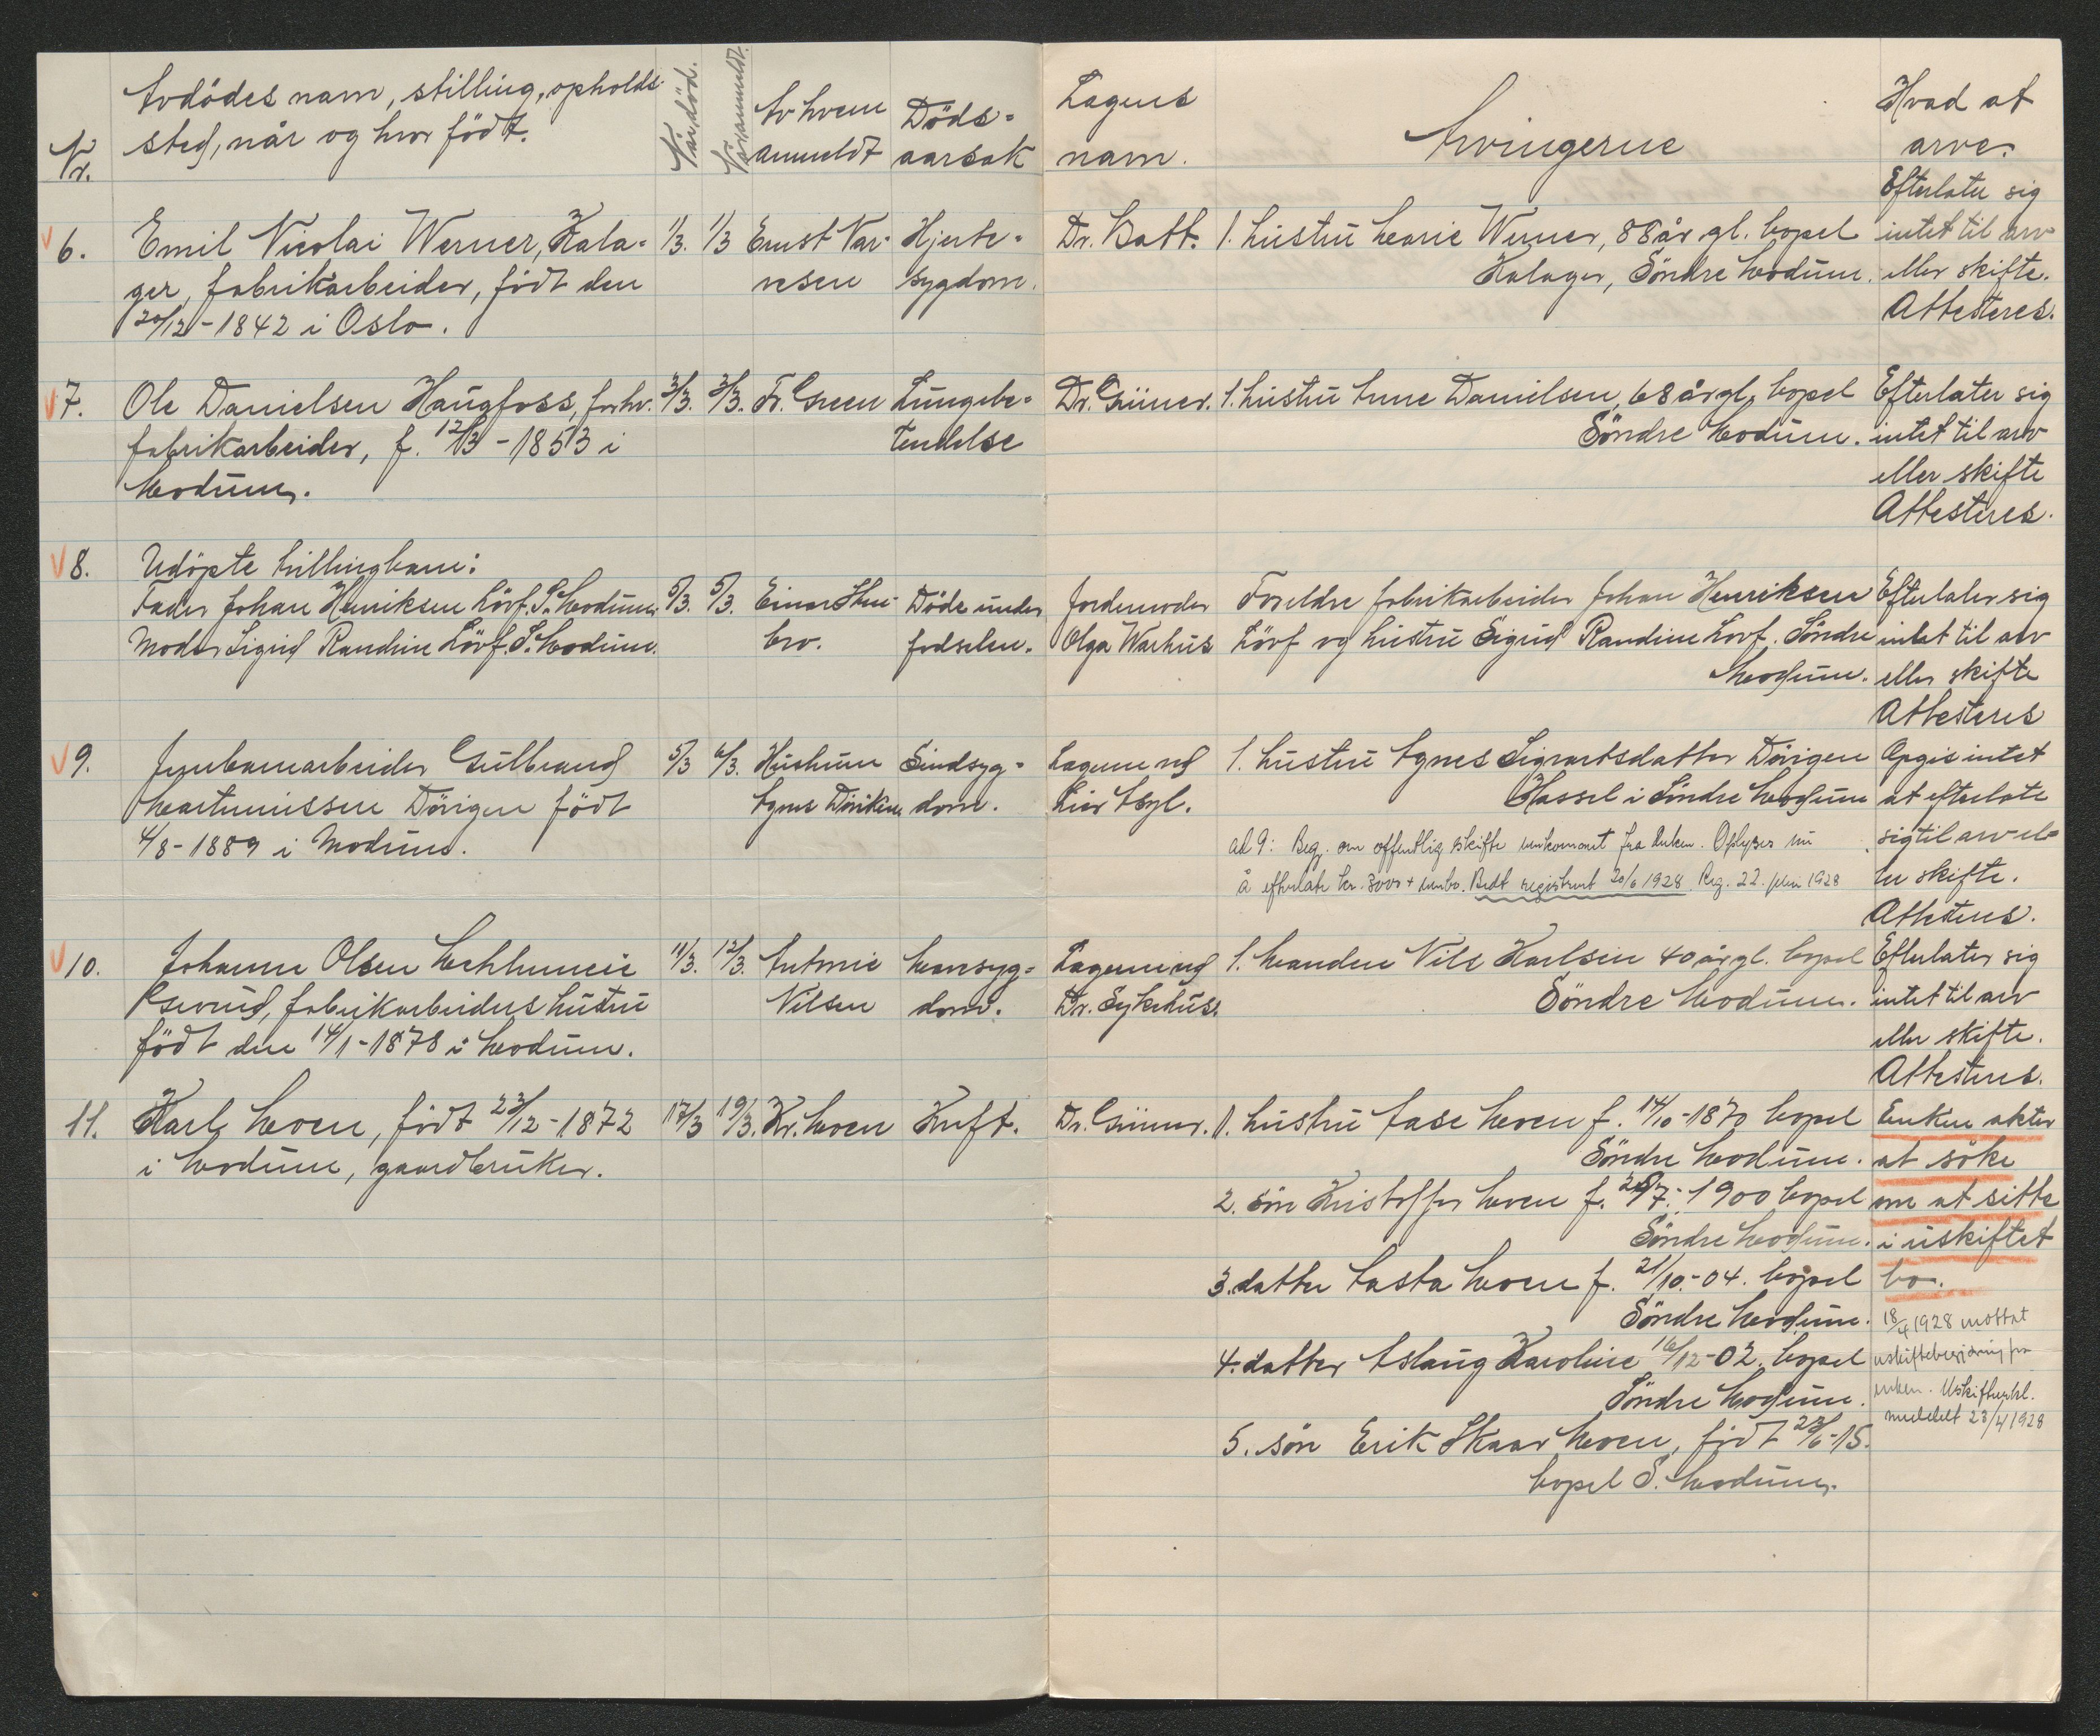 Nr.
Avdödes navn, stilling, opholds-
sted, når og hvor födt.
Når död.
Når anmeldt.
Av hvem
anmeldt
Döds-
aarsak
Lægens
navn.
Arvingerne
Hvad at
arve.
6. Emil Nicolai Werner, Kala-
ger, fabrikarbeider, födt den
20/12-1842 i Oslo.
1/3. 1/3
Ernst
Hjerte-
sygdom.
Dr. Batt.
1. hustru Marie Werner, 88 år gl. bopel
Kalager, Söndre Modum.
Efterlater sig
intet til arv
eller skifte.
Attesteres.
7. Ole Danielsen Haugfoss, forhv.
fabrikarbeider, f. 12/3-1853 i
Modum.
3/3. 3/3.
Fr. Green
Lungebe-
tendelse
Dr. Grüner.
1. hustru Anne Danielsen, 68 år gl. bopel
Söndre Modum.
Efterlater sig
intet til arv
eller skifte
Attesteres.
8. Udöpte tvillingbarn:
Fader Johan Henriksen Lövf. S. Modum.
Moder Sigrid Randine Lövf. S. Modum.
5/3. 5/3.
Einar Sku-
bro.
Döde under
fodselen.
Jordemoder
Olga Warhus
Foreldre fabrikarbeider Johan Henriksen
Lövf og hustru Sigrid Randine Lovf. Söndre
Modum.
Efterlater sig
intet til arv
eller skifte
Attesteres
9. Jernbanearbeider Gulbrand
Martiniussen Dövigen födt
4/8-1889 i Modum.
5/3 6/3.
Hustruen
Agnes
Sindsyg-
dom.
Lægene ved
Lier Asyl.
1. hustru Agnes Sigvartsdatter Dövigen
Hassel i Söndre Modum
ad 9: Beg. om offentlig skifte innkommet fra enken. Oplyses nu
å efterlate kr. 3000 + innbo. Bedt registrert 20/6 1928. Reg. 22. juni 1928
Opgis intet
at efterlate
sig til arv el-
ler skifte.
Attesteres.
10. Johanne Olsen
fabrikarbeiders hustru
födt den 14/1-1878 i Modum.
11/3. 12/3.
Antonie
Nilsen
Mavesyg-
dom.
Lægene ved
Dr. Sykehus.
1. Manden Nils Karlsen 40 år gl. bopel
Söndre Modum.
Efterlater sig
intet til arv
eller skifte.
Attesteres.
11. Karl Moen, födt 23/12-1872
i Modum, gaardbruker.
17/3 19/3.
Kr. Moen
Kreft.
Dr. Grüner.
1. hustru Aase Moen f. 14/10-1870 bopel
Söndre Modum.
2. sön Kristoffer Moen f. 1900 bopel
Söndre Modum.
3. datter Aasta Moen f. 21/10-04. bopel
Söndre Modum.
4. datter Aslaug Karoline 16/12-02. bopel
Söndre Modum.
5. sön Erik Skaar Moen, födt 23/6-15.
bopel S. Modum.
Enken akter
at söke
om at sitte
i uskiftet
bo.
18/4 1928 mottat
uskiftebegjæring fra
enken. Uskifteerkl.
meddelt 23/4 1928